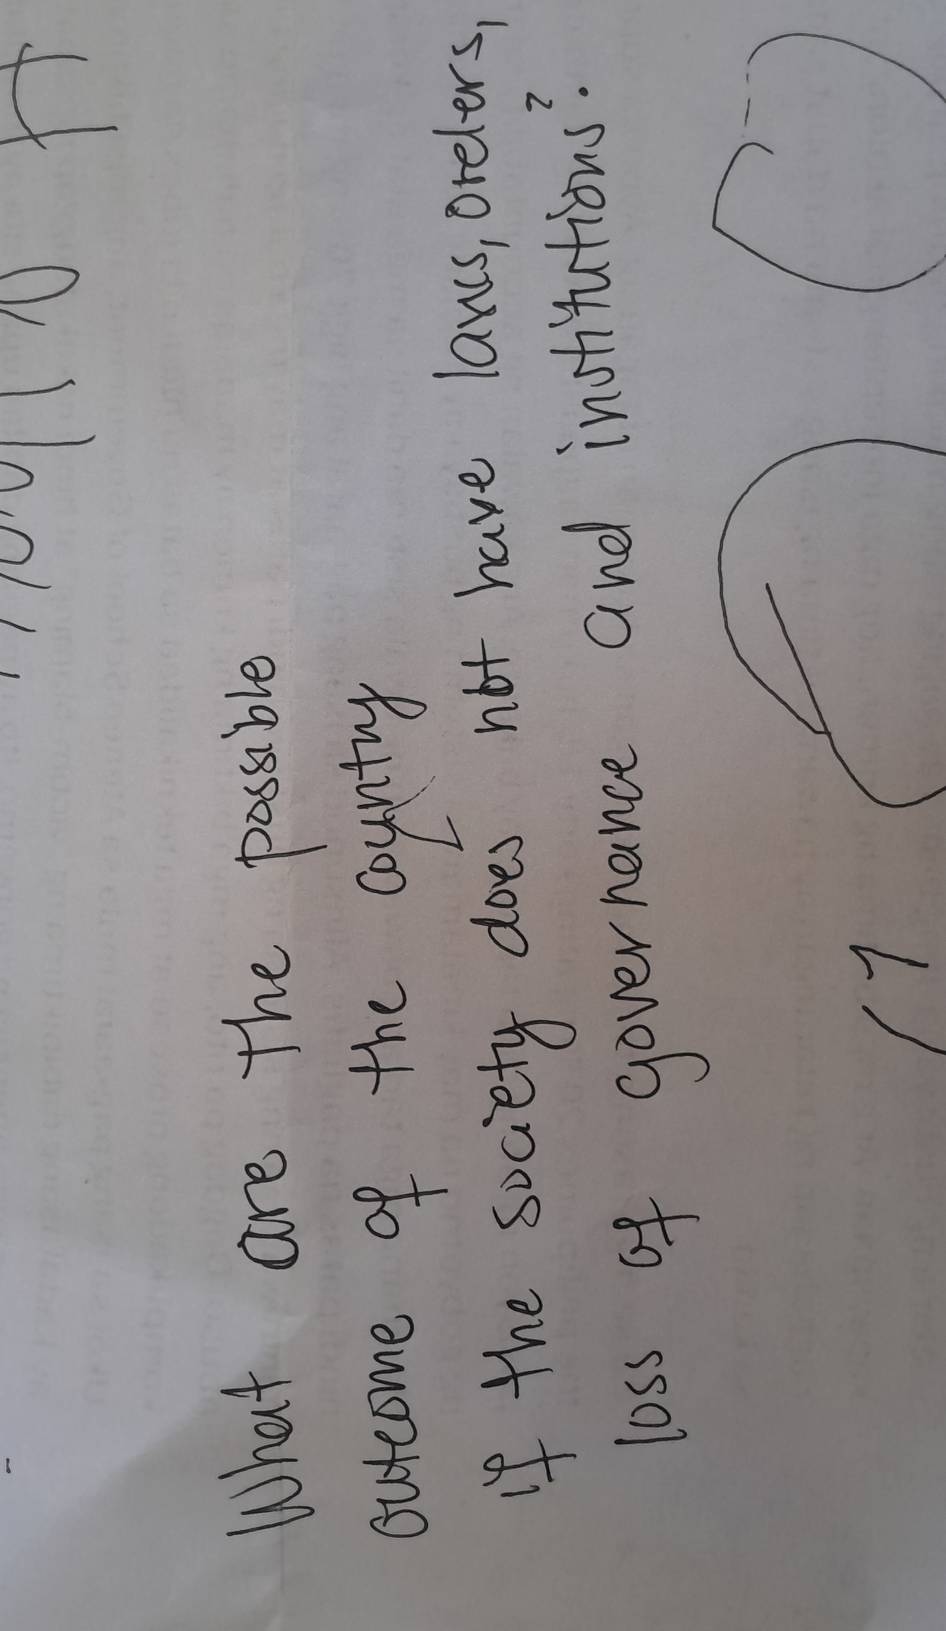 What are the possible
outcome of the country
if the society does not have laws, orders,
loss of governance and institutions?